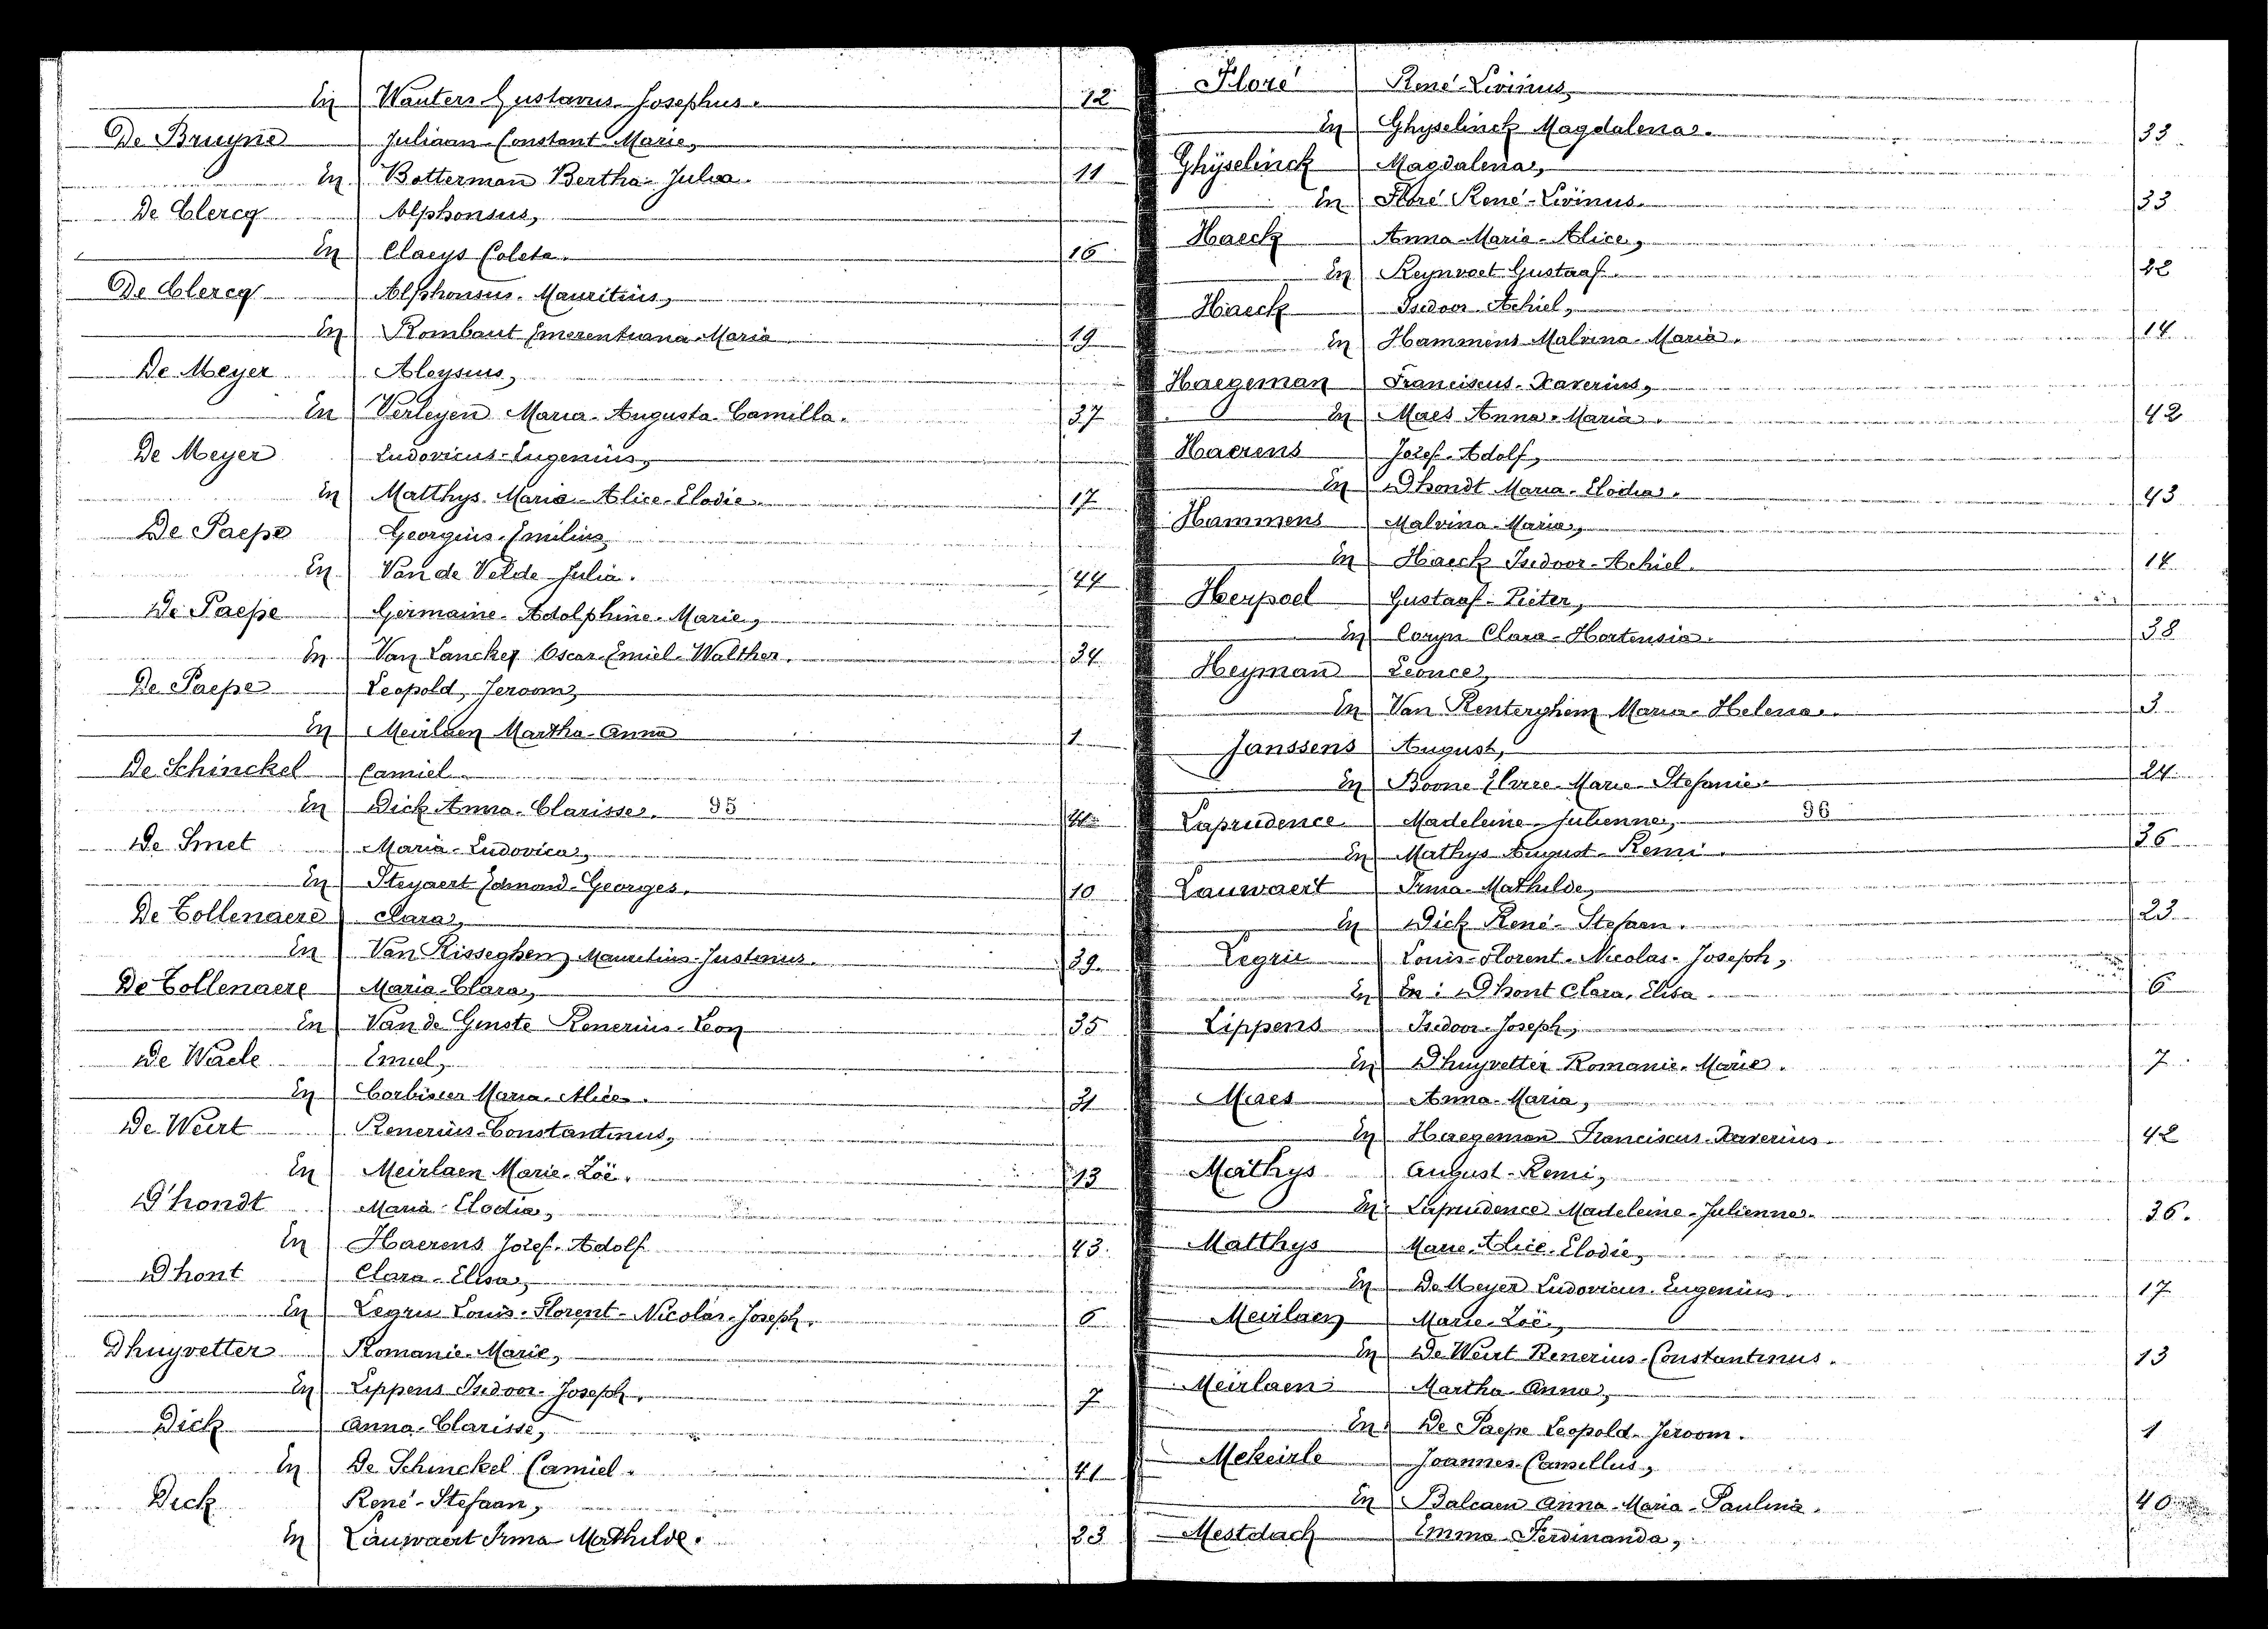 En Wauters Gustavus Josephus. 12
De Bruyne Juliaan-Constant-Marie,
En Botterman Bertha-Julia. 11
De Clercq Alphonsus,
En Claeys Coleta. 16
De Clercq Alphonsus-Mauritius,
En Rombaut Emerentiana-Maria 19
De Meyer Aloysius,
En Verleyen Maria-Augusta-Camilla. 37
De Meyer Ludovicus-Eugenius,
En Matthys Marie-Alice-Elodie. 17
De Paepe Georgius-Emilius,
En Van de Velde Julia. 44
De Paepe Germaine-Adolphine-Marie,
En Van Lancker Oscar-Emiel-Walther. 34
De Paepe Leopold, Jeroom,
En Meirlaen Martha-Anna 1
De Schinckel Camiel
En Dick Anna-Clarisse. 95 41
De Smet Maria-Ludovica,
En Steyaert Edmond-Georges. 10
De Tollenaere Clara,
En Van Risseghem Mauritius-Justinus. 39.
De Tollenaere Maria-Clara,
En Van de Ginste Renerius-Leon 35
De Waele Emiel,
En Corbisier Maria-Alice. 31
De Weirt Renerius-Constantinus,
En Meirlaen Marie-Zoë. 13
D'hondt Maria-Elodia,
En Haerens Jozef-Adolf 43.
Dhont Clara-Elisa,
En Legrie Louis-Florent-Nicolas-Joseph. 6
Dhuyvetter Romanie-Marie,
En Lippens Isidoor-Joseph. 7
Dick Anna-Clarisse,
En De Schinckel Camiel. 41
Dick René-Stefaan,
En Lauwaert Irma Mathilde. 23
Floré René-Livinus,
En Ghyselinck Magdalena. 33
Ghÿselinck Magdalena,
En Floré René-Livinus. 33
Haeck Anna-Maria-Alice,
En Reynvoet Gustaaf. 22
Haeck Isidoor-Achiel,
En Hammens Malvina-Maria. 14
Haegeman Franciscus-Xaverius,
En Maes Anna-Maria. 42
Haerens Jozef-Adolf,
En D'hondt Maria-Elodia. 43
Hammens Malvina-Maria,
En Haeck Isidoor-Achiel. 14
Herpoel Gustaaf-Pieter,
En Coryn Clara-Hortensia. 38
Heyman Leonce,
En Van Renterghem Maria-Helena. 3
Janssens August,
En Boone Marie-Stefanie 24
Laprudence Madeleine-Julienne, 96
En Mathys August-Remi. 36
Lauwaert Irma-Mathilde,
En Dick René-Stefaan. 23
Legrie Louis-Florent-Nicolas-Joseph,
En En: Dhont Clara, Elisa. 6
Lippens Isidoor-Joseph,
En Dhuyvetter Romanie-Marie. 7
Maes Anna-Maria,
En Haegeman Franciscus-Xaverius. 42
Mathys August-Remi,
En Laprudence Madeleine-Julienne. 36.
Matthys Marie-Alice-Elodie,
En De Meyer Ludovicus-Eugenius. 17
Meirlaen Marie-Zoë,
En De Weirt Renerius-Constantinus. 13
Meirlaen Martha-Anna,
En De Paepe Leopold-Jeroom. 1
Mekeirle Joannes-Camillus,
En Balcaen Anna-Maria-Paulina. 40
Mestdach Emma-Ferdinanda,